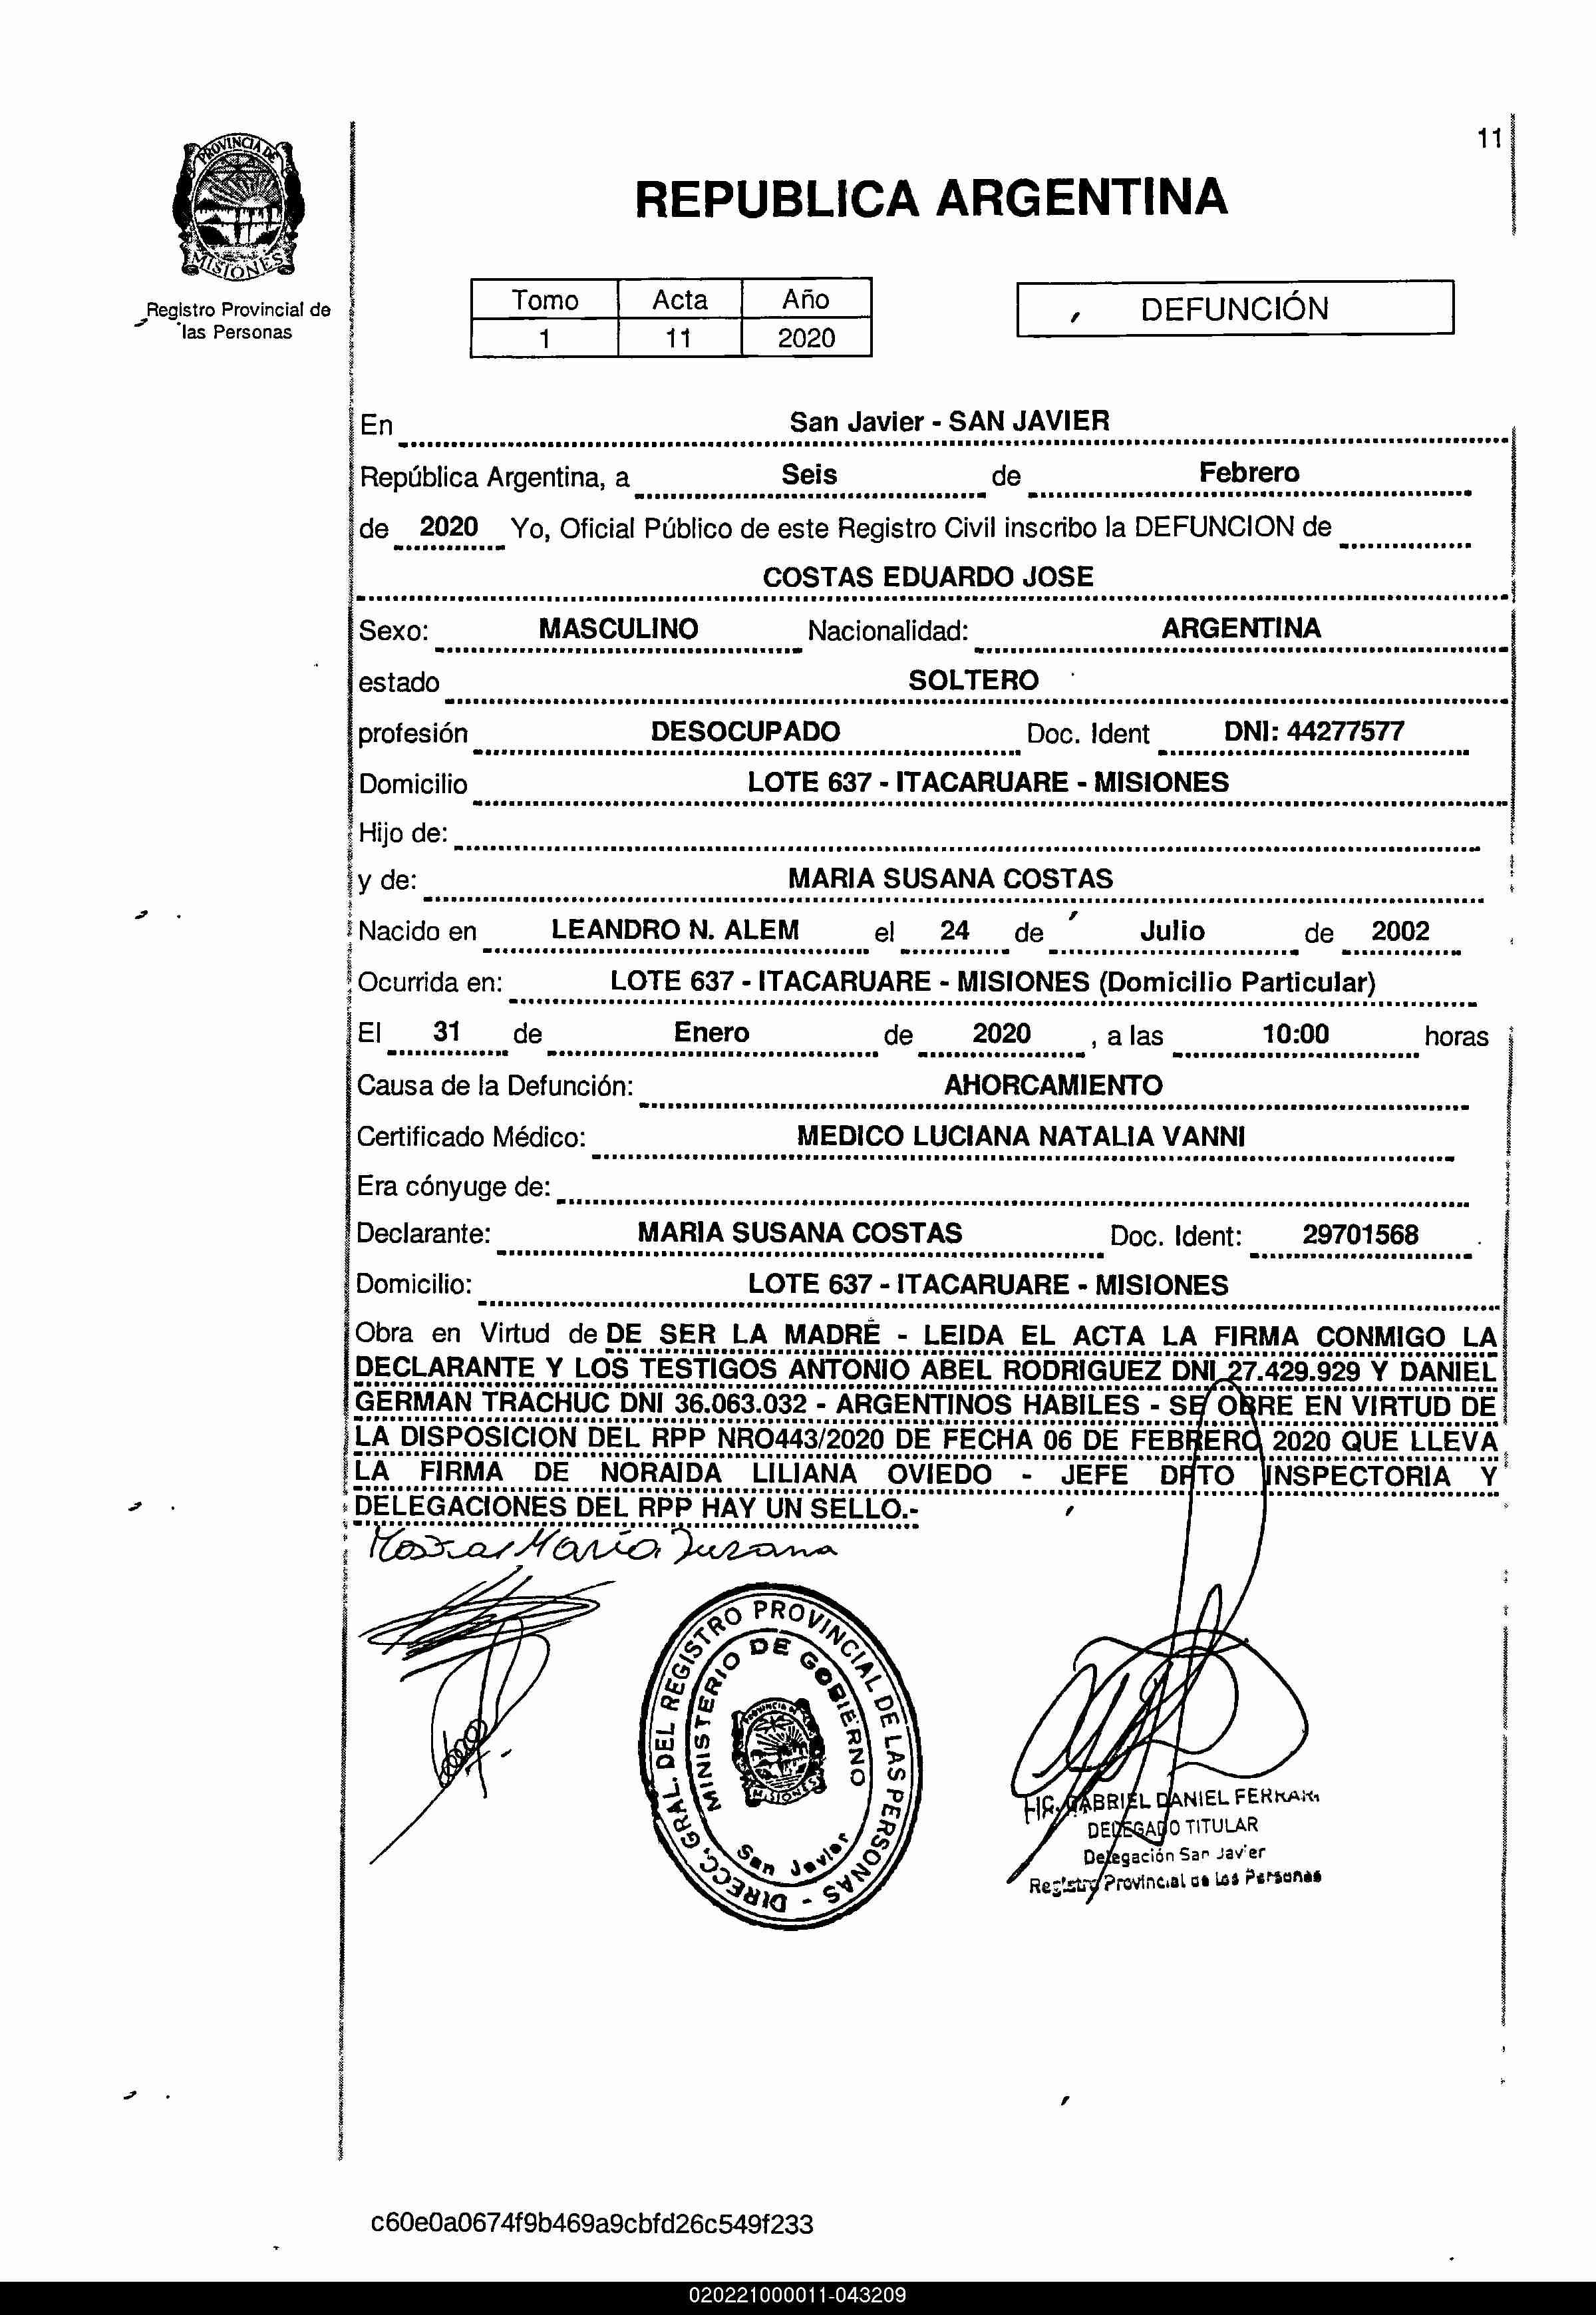 11
PROVINCIA DE
MISIONES
Registro Provincial de
las Personas
REPUBLICA ARGENTINA
Tomo Acta Año
1 11 2020
DEFUNCIÓN
En San Javier - SAN JAVIER
República Argentina, a Seis de Febrero
de 2020 Yo, Oficial Público de este Registro Civil inscribo la DEFUNCION de
COSTAS EDUARDO JOSE
Sexo: MASCULINO Nacionalidad: ARGENTINA
estado SOLTERO
profesión DESOCUPADO Doc. Ident DNI: 44277577
Domicilio LOTE 637 - ITACARUARE - MISIONES
Hijo de:
y de: MARIA SUSANA COSTAS
Nacido en LEANDRO N. ALEM el 24 de Julio de 2002
Ocurrida en: LOTE 637 - ITACARUARE - MISIONES (Domicilio Particular)
El 31 de Enero de 2020 , a las 10:00 horas
Causa de la Defunción: AHORCAMIENTO
Certificado Médico: MEDICO LUCIANA NATALIA VANNI
Era cónyuge de:
Declarante: MARIA SUSANA COSTAS Doc. Ident: 29701568
Domicilio: LOTE 637 - ITACARUARE - MISIONES
Obra en Virtud de DE SER LA MADRE - LEIDA EL ACTA LA FIRMA CONMIGO LA
DECLARANTE Y LOS TESTIGOS ANTONIO ABEL RODRIGUEZ DNI 27.429.929 Y DANIEL
GERMAN TRACHUC DNI 36.063.032 - ARGENTINOS HABILES - SE OBRE EN VIRTUD DE
LA DISPOSICION DEL RPP NRO443/2020 DE FECHA 06 DE FEBRERO 2020 QUE LLEVA
LA FIRMA DE NORAIDA LILIANA OVIEDO - JEFE DPTO INSPECTORIA Y
DELEGACIONES DEL RPP HAY UN SELLO.-
María Susana
DIRECC. GRAL. DEL REGISTRO PROVINCIAL DE LAS PERSONAS -
MINISTERIO DE GOBIERNO
PROVINCIA DE
MISIONES
San Javier
LIC. GABRIEL DANIEL FERRARI
DELEGADO TITULAR
Delegación San Javier
Registro Provincial de las Personas
c60e0a0674f9b469a9cbfd26c549f233
020221000011-043209